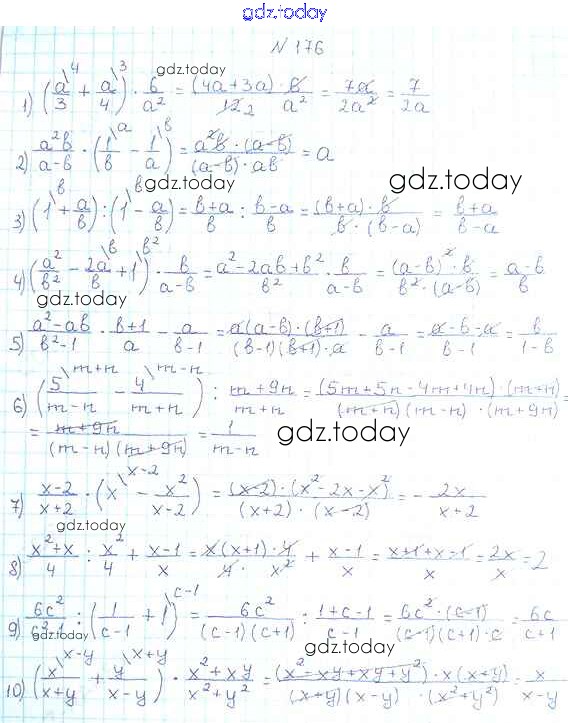 gdz.today
N 176
gdz.today
1) (a/3 \4 + a/4 \3) · 6/a² = (4a+3a) · 6 / 12 2 a² = 7a/2a² = 7/2a
2) a²b/a-b · (1/b \a - 1/a \b) = a²b · (a-b) / (a-b) · ab = a
gdz.today
3) (1 \b + a/b) : (1 \b - a/b) = b+a/b : b-a/b = (b+a) · b / b · (b-a) = b+a/b-a
4) (a²/b² - 2a/b \b + 1 \b²) · b/a-b = a²-2ab+b²/b² · b/a-b = (a-b)² · b / b² · (a-b) = a-b/b
gdz.today
5) a²-ab/b²-1 · b+1/a - a/b-1 = a(a-b) · (b+1) / (b-1)(b+1) · a - a/b-1 = a-b-a/b-1 = b/1-b
6) (5/m-n \m+n - 4/m+n \m-n) : m+9n/m+n = (5m+5n-4m+4n) · (m+n) / (m+n)(m-n) · (m+9n) =
= m+9n/(m-n)(m+9n) = 1/m-n
gdz.today
7) x-2/x+2 : (x \x-2 - x²/x-2) = (x-2) · (x²-2x-x²) / (x+2) · (x-2) = - 2x/x+2
gdz.today
8) x²+x/4 : x²/4 + x-1/x = x(x+1) · 4 / 4 · x² + x-1/x = x+1+x-1/x = 2x/x = 2
9) 6c²/c²-1 : (1/c-1 + 1 \c-1) = 6c²/(c-1)(c+1) : 1+c-1/c-1 = 6c² · (c-1) / (c-1)(c+1) · c = 6c/c+1
gdz.today
gdz.today
10) (x/x+y \x-y + y/x-y \x+y) · x²+xy/x²+y² = (x²-xy+xy+y²) · x(x+y) / (x+y)(x-y) · (x²+y²) = x/x-y